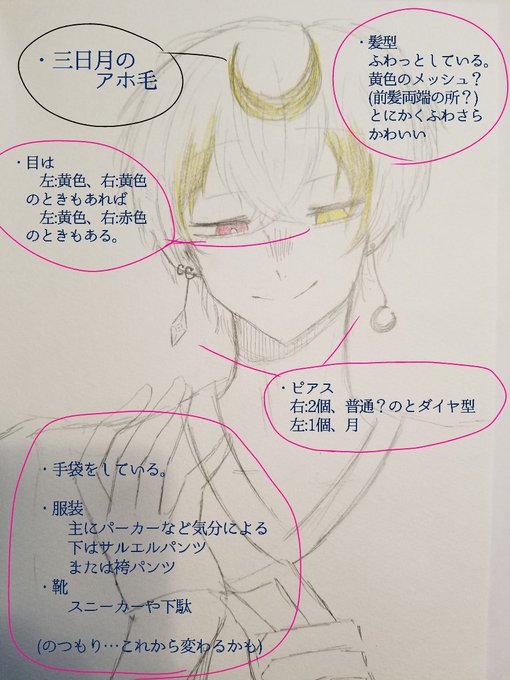 ・三日月の
アホ毛
・髪型
ふわっとしている。
黄色のメッシュ?
(前髪両端の所?)
とにかくふわさら
かわいい
・目は
左:黄色、右:黄色
のときもあれば
左:黄色、右:赤色
のときもある。
・ピアス
右:2個、普通?のとダイヤ型
左:1個、月
・手袋をしている。
・服装
主にパーカーなど気分による
下はサルエルパンツ
または袴パンツ
・靴
スニーカーや下駄
(のつもり…これから変わるかも)